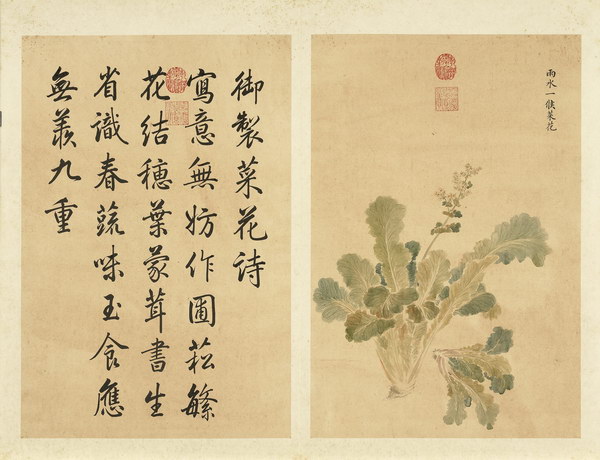 雨水一候菜花
御製菜花詩
寫意無妨作圃菘繁
花結穗葉蒙茸書生
省識春蔬味玉食應
無羨九重